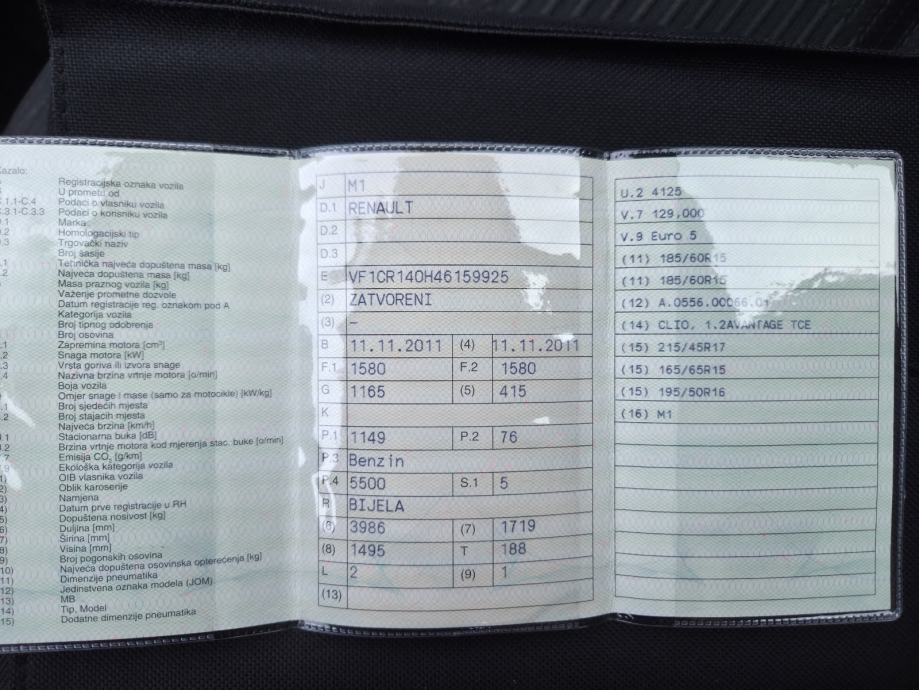 Kazalo:
Registracijska oznaka vozila
U prometu od
C.1.1-C.4 Podaci o vlasniku vozila
C.3.1-C.3.3 Podaci o korisniku vozila
Marka
Homologacijski tip
Trgovački naziv
Broj šasije
Tehnička najveća dopuštena masa [kg]
Najveća dopuštena masa [kg]
Masa praznog vozila [kg]
Važenje prometne dozvole
Datum registracije reg. oznakom pod A
Kategorija vozila
Broj tipnog odobrenja
Broj osovina
Zapremina motora [cm³]
Snaga motora [kW]
Vrsta goriva ili izvora snage
Nazivna brzina vrtnje motora [o/min]
Boja vozila
Omjer snage i mase (samo za motocikle) [kW/kg]
Broj sjedećih mjesta
Broj stajaćih mjesta
Najveća brzina [km/h]
Stacionarna buka [dB]
Brzina vrtnje motora kod mjerenja stac. buke [o/min]
Emisija CO₂ [g/km]
Ekološka kategorija vozila
OIB vlasnika vozila
Oblik karoserije
Namjena
Datum prve registracije u RH
Dopuštena nosivost [kg]
Duljina [mm]
Širina [mm]
Visina [mm]
Broj pogonskih osovina
10) Najveća dopuštena osovinska opterećenja [kg]
11) Dimenzije pneumatika
12) Jedinstvena oznaka modela (JOM)
13) MB
14) Tip, Model
15) Dodatne dimenzije pneumatika
J M1
D.1 RENAULT
D.2
D.3
E VF1CR140H46159925
(2) ZATVORENI
(3) –
B 11.11.2011 (4) 11.11.2011
F.1 1580 F.2 1580
G 1165 (5) 415
K
P.1 1149 P.2 76
P.3 Benzin
P.4 5500 S.1 5
R BIJELA
(6) 3986 (7) 1719
(8) 1495 T 188
L 2 (9) 1
(13)
U.2 4125
V.7 129,000
V.9 Euro 5
(11) 185/60R15
(11) 185/60R15
(12) A.0556.00066.01
(14) CLIO, 1.2AVANTAGE TCE
(15) 215/45R17
(15) 165/65R15
(15) 195/50R16
(16) M1